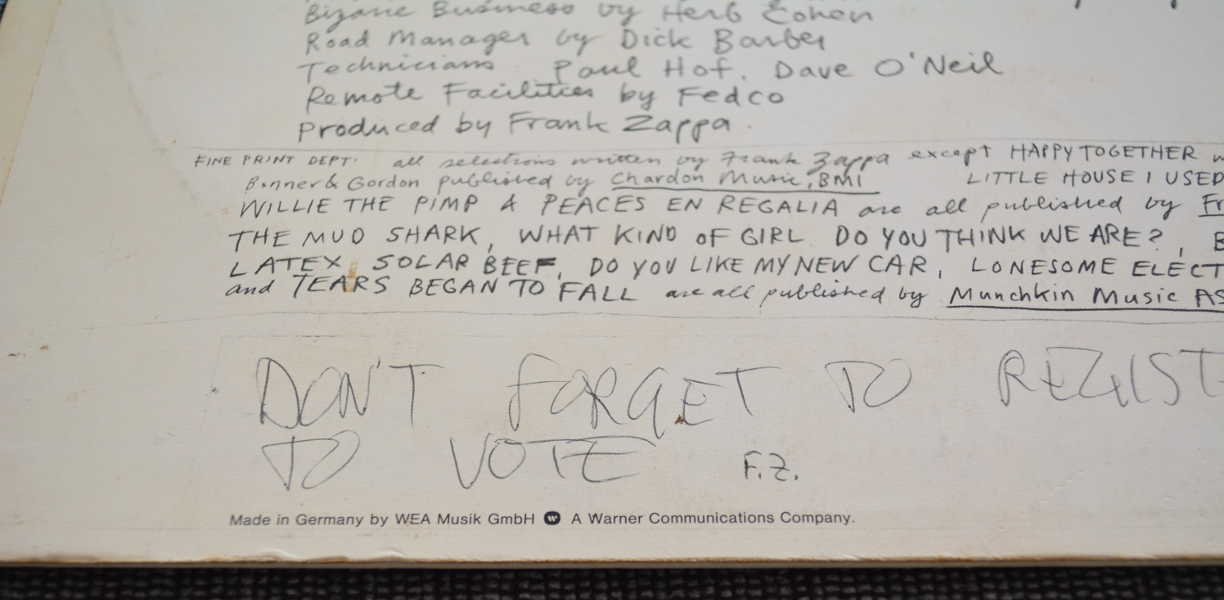 Bizarre Business by Herb Cohen
Road Manager by Dick Barber
Technicians Paul Hof. Dave O'Neil
Remote Facilities by Fedco
Produced by Frank Zappa.
FINE PRINT DEPT. all selections written by Frank Zappa except HAPPY TOGETHER
Bonner & Gordon published by Chardon Music, BMI LITTLE HOUSE I USED
WILLIE THE PIMP & PEACES EN REGALIA are all published by Fr
THE MUD SHARK, WHAT KIND OF GIRL DO YOU THINK WE ARE?,
LATEX SOLAR BEEF, DO YOU LIKE MY NEW CAR, LONESOME ELECT
and TEARS BEGAN TO FALL are all published by Munchkin Music AS
DON'T FORGET TO REGIST
TO VOTE F.Z.
Made in Germany by WEA Musik GmbH W A Warner Communications Company.